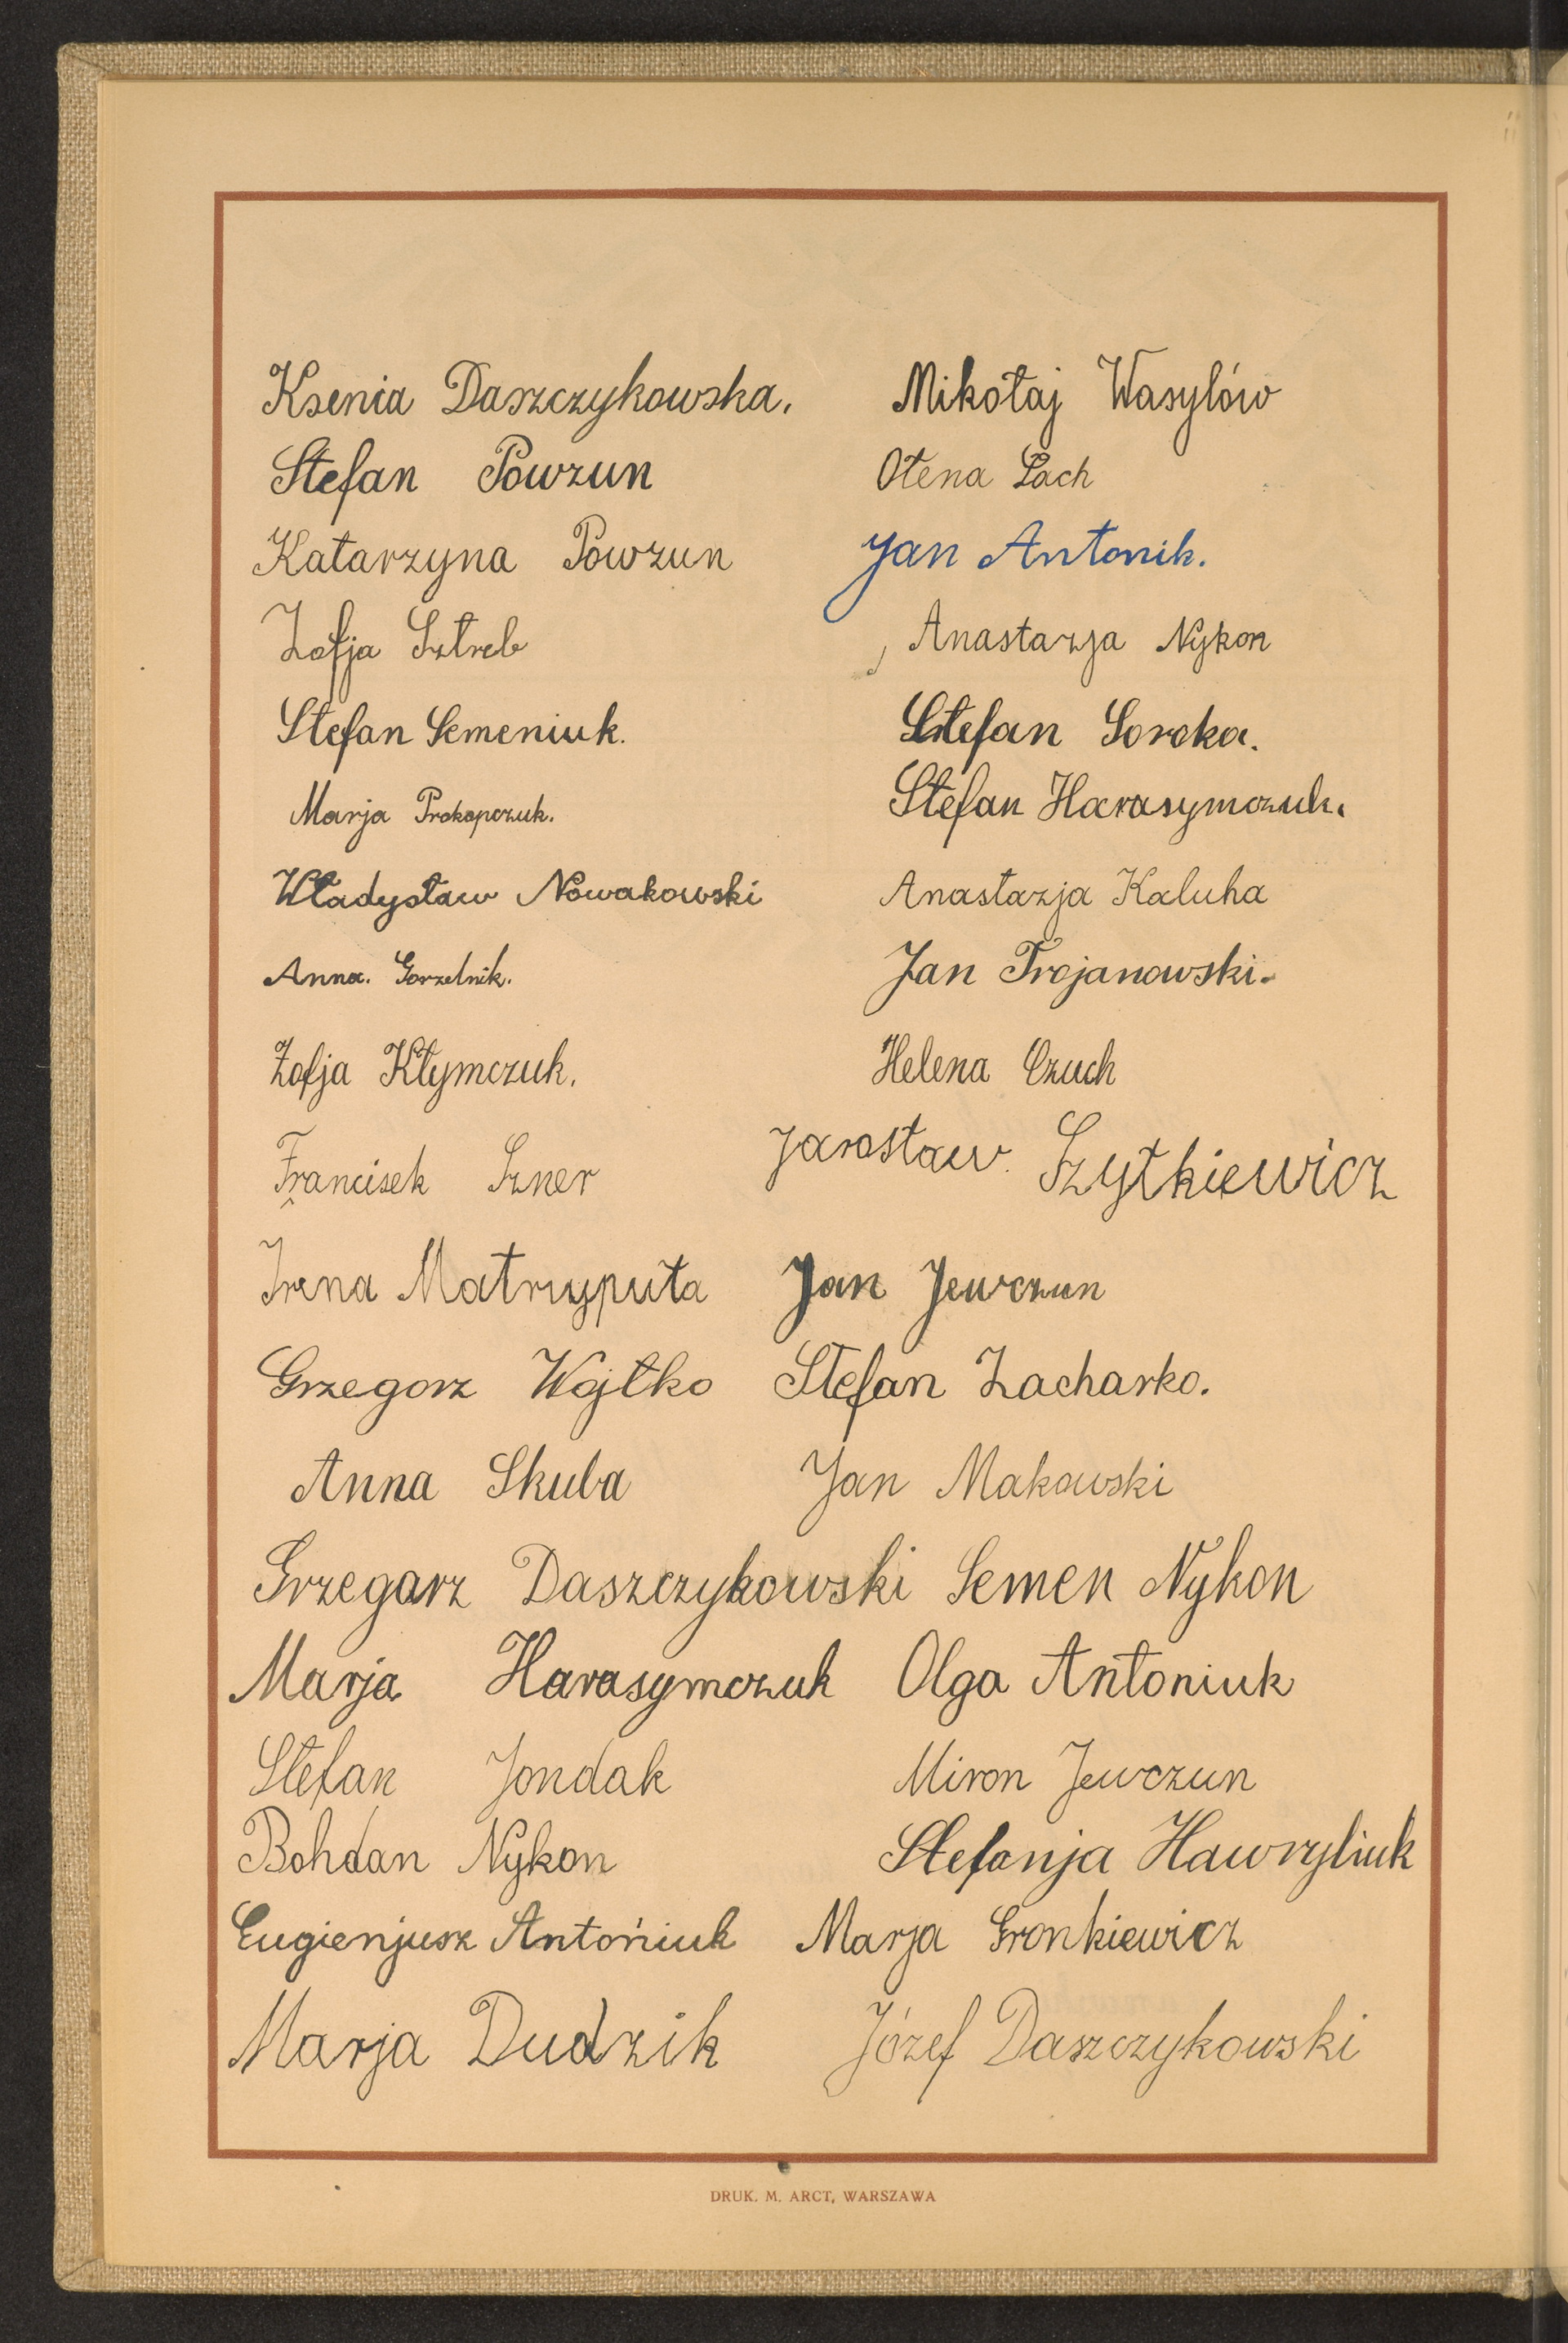 Ksenia Daszczykowska.
Stefan Powzun
Katarzyna Powzun
Zofja Sztreb
Stefan Semeniuk.
Marja Prokopczuk.
Władysław Nowakowski
Anna. Gorzelnik.
Zofja Kłymczuk.
Francisek Szner
Irena Matrzyputa
Grzegorz Wojtko
Anna Skuba
Grzegarz Daszczykowski
Marja Harasymczuk
Stefan Jondak
Bohdan Nykon
Eugienjusz Antońiuk
Marja Dudzik
Mikołaj Wasylów
Ołena Lach
Jan Antonik.
Anastazja Nykon
Stefan Soroka.
Stefan Harasymczuk.
Anastazja Kaluha
Jan Trojanowski.
Helena Czuch
Jarosław. Szytkiewicz
Jan Jewczun
Stefan Zacharko.
Jan Makowski
Semen Nykon
Olga Antoniuk
Miron Jewczun
Stefanja Hawryliuk
Marja Gronkiewicz
Józef Daszczykowski
DRUK. M. ARCT, WARSZAWA